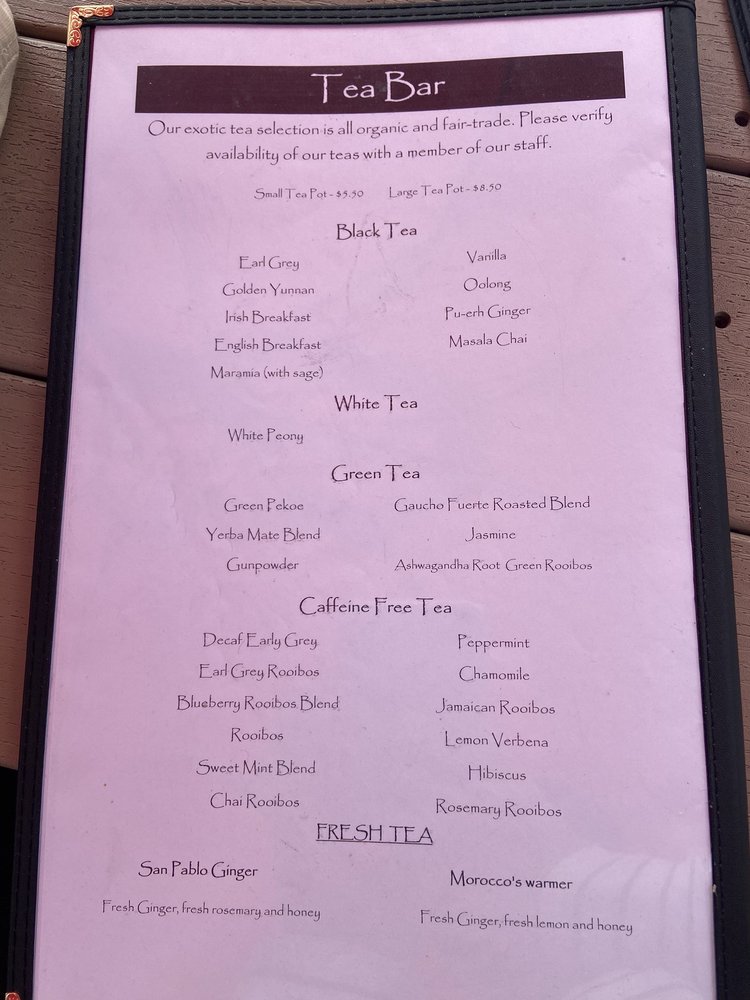 Tea Bar
Our exotic tea selection is all organic and fair-trade. Please verify
availability of our teas with a member of our staff.
Small Tea Pot - $5.50 Large Tea Pot - $8.50
Black Tea
Earl Grey Vanilla
Golden Yunnan Oolong
Irish Breakfast Pu-erh Ginger
English Breakfast Masala Chai
Maramia (with sage)
White Tea
White Peony
Green Tea
Green Pekoe Gaucho Fuerte Roasted Blend
Yerba Mate Blend Jasmine
Gunpowder Ashwagandha Root Green Rooibos
Caffeine Free Tea
Decaf Early Grey Peppermint
Earl Grey Rooibos Chamomile
Blueberry Rooibos Blend Jamaican Rooibos
Rooibos Lemon Verbena
Sweet Mint Blend Hibiscus
Chai Rooibos Rosemary Rooibos
FRESH TEA
San Pablo Ginger Morocco's warmer
Fresh Ginger, fresh rosemary and honey Fresh Ginger, fresh lemon and honey